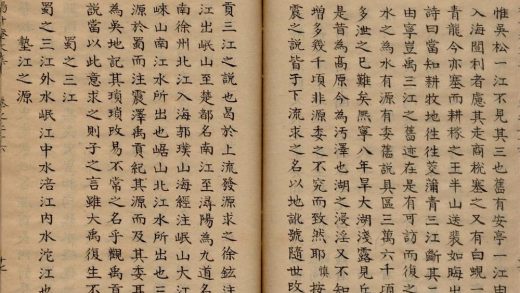 惟吳松一江不見其三也舊有安亭一江由
入海聞利者慮其走商梲塞之又有白蜆一
青龍今亦塞而耕稼之王半山送裴如晦出
詩曰當知耕牧地徃徃茭蒲青三江斷其二
由寧豈禹三江之舊迹在是有可訪而復之
水之為水有源有委舊說具區三萬六十項
多泄之已難矣熈寧八年旱大湖淺露見丘
是皆為高原今為汚澤也湖之浸淫又不知
增多幾十項非源委之不究而致然耶 按
震之說皆于下流求之名以地訛號隨世攺
貢三江之說也曷於上流發源求之徐鉉注
江出岷山至楚都名南江至潯陽為九道名
南徐州北江入海郭璞山海經注岷山大江
崍山南江水所出也崌山北江水所出也三
源於蜀而注震澤禹貢紀其源而及其委耳
為吳地記其瑣瑣攺易不常之名乎觀禹貢
說當以此意求之則子之言雖大禹復生不
蜀之三江
蜀之三江外水岷江中水涪江内水沱江也
墊江之源